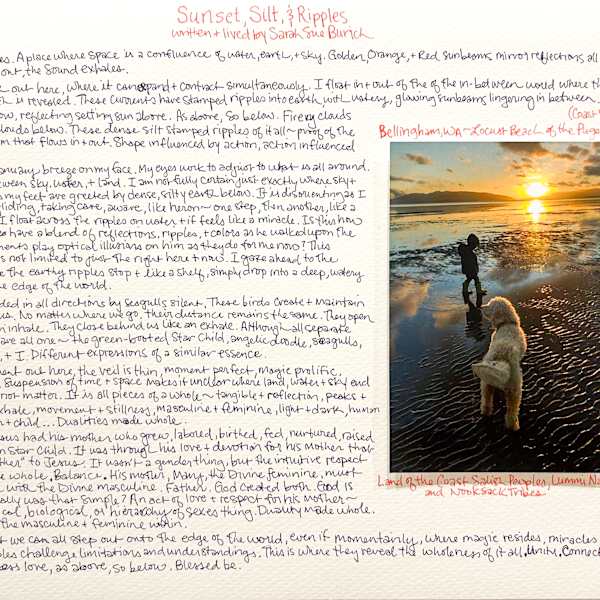 Sunset, Silt, & Ripples
written + lived by Sarah Sue Burich
es. A place where space is a confluence of water, earth, + sky. Golden, Orange, + Red sunbeams mirror reflections all
out, the Sound exhales.
out here, where it can expand + contract simultaneously. I float in + out of the of the in-between world where th
is revealed. These currents have stamped ripples into earth with watery, glowing sunbeams lingering in between.
(Coast
ow, reflecting setting sun above. As above, so below. Fiery clouds
louds below. These dense silt stamped ripples of it all ~ proof of the
m that flows in + out. Shape influenced by action, action influenced
Bellingham, WA ~ Locust Beach of the Puge
anuary breeze on my face. My eyes work to adjust to what is all around.
ween sky, water, + land. I am not fully certain just exactly where sky +
s my feet are greeted by dense, silty earth below. It is disorienting as I
gliding, taking care, aware, like honor ~ one step, then another, like a
I float across the ripples on water + it feels like a miracle. Is this how
s have a blend of reflections, ripples, + colors as he walked upon the
ments play optical illusions on him as they do for me now? This
is not limited to just the right here + now. I gaze ahead to the
e the earthy ripples stop + like a shelf, simply drop into a deep, watery
e edge of the world.
ded in all directions by seagulls silent. These birds create + maintain
us. No matter where we go, their distance remains the same. They open
n inhale. They close behind us like an exhale. Although all separate
are all one ~ the green-booted Star Child, angelic doodle, seagulls,
, + I. Different expressions of a similar essence.
ment out here, the veil is thin, moment perfect, magic prolific.
suspension of time + space makes it unclear where land, water + sky end
not matter. It is all pieces of a whole ~ tangible + reflection, peaks +
xhale, movement + stillness, masculine + feminine, light + dark, human
+ child... Dualities made whole.
esus had his mother who grew, labored, birthed, fed, nurtured, raised
n Star Child. It was through his love + devotion for his Mother that
ther" to Jesus. It wasn't a gender thing, but the intuitive respect
e whole. Balance. His mother, Mary, the Divine feminine, must
with the Divine masculine, Father. God created both. God is
ally was that simple? An act of love + respect for his mother ~
cal, biological, or hierarchy of sexes thing. Duality made whole.
the masculine + feminine within.
Land of the Coast Salish Peoples, Lummi Na
and Nooksack Tribes.
t we can all step out onto the edge of the world, even if momentarily, where magic resides, miracles
ples challenge limitations and understandings. This is where they reveal the wholeness of it all. Unity. Connect
ess love, as above, so below. Blessed be.